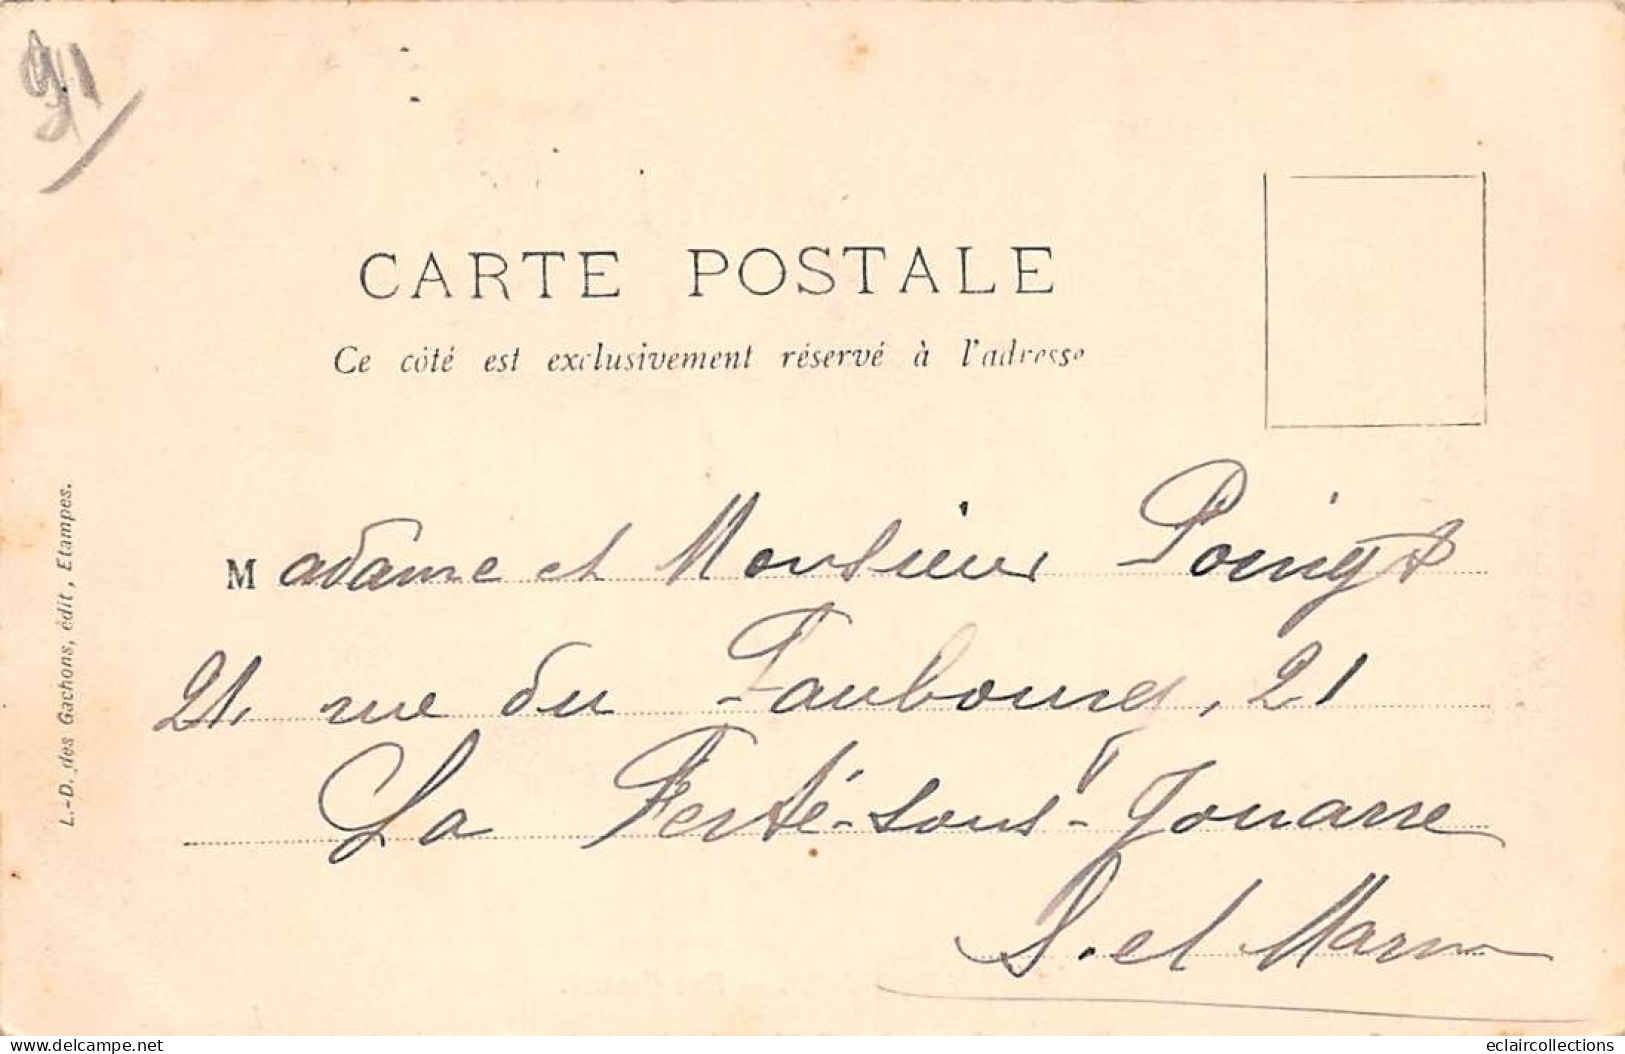 91
CARTE POSTALE
Ce côté est exclusivement réservé à l'adresse
Madame et Monsieur
21, rue du Faubourg, 21
La Ferté-sous-Jouarre
S. et Marne
L.-D. des Gachons, édit, Etampes.
www.delcampe.net
eclaircollections